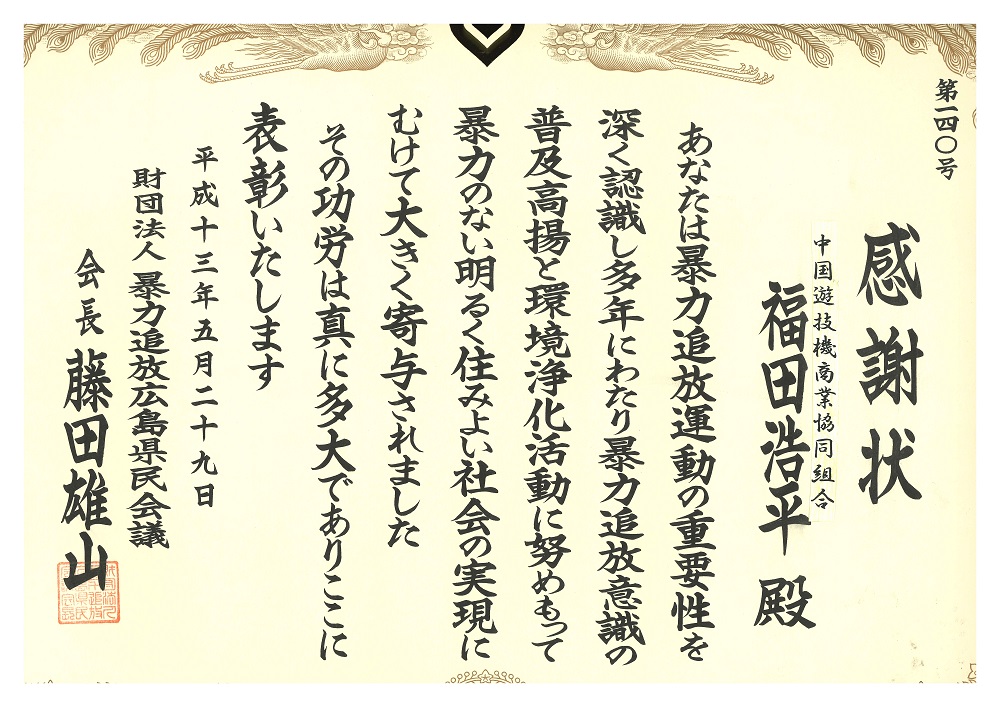 第一四〇号
感謝状
中国遊技機商業協同組合
福田浩平 殿
あなたは暴力追放運動の重要性を
深く認識し多年にわたり暴力追放意識の
普及高揚と環境浄化活動に努めもって
暴力のない明るく住みよい社会の実現に
むけて大きく寄与されました
その功労は真に多大でありここに
表彰いたします
平成十三年五月二十九日
財団法人 暴力追放広島県民会議
会長 藤田雄山